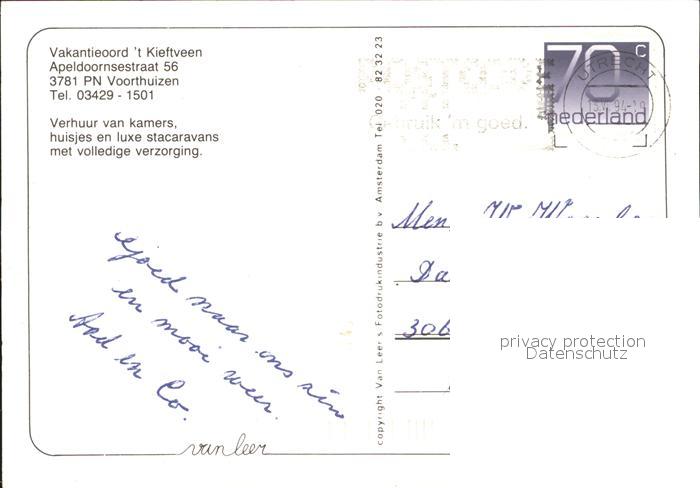 Vakantieoord 't Kieftveen
Apeldoornsestraat 56
3781 PN Voorthuizen
Tel. 03429 - 1501
Verhuur van kamers,
huisjes en luxe stacaravans
met volledige verzorging.
naar ons zin
en mooi weer.
Aad en Co.
van leer
copyright Van Leer's Fotodrukindustrie b.v. Amsterdam Tel. 020 - 82 32 23
70 c
nederland
UTRECHT
94
'm goed.
306
privacy protection
Datenschutz